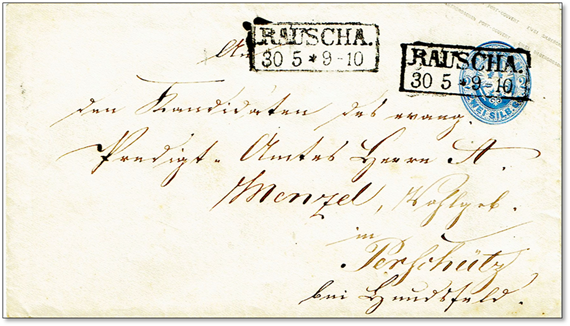 RAUSCHA.
30 5 * 9-10
RAUSCHA.
30 5 * 9-10
ZWEI SILB
An
den Kandidaten des evang.
Predigt-Amtes Herrn A.
Menzel, Wohlgeb.
in
Perschütz
bei Hundsfeld.